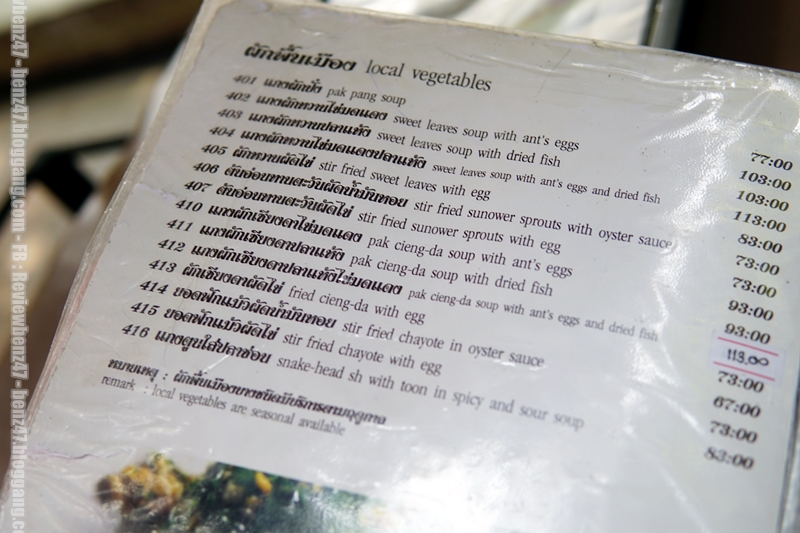 ผักพื้นเมือง local vegetables
401 แกงผักปั๋ง pak pang soup 77:00
402 แกงผักหวานไข่มดแดง sweet leaves soup with ant's eggs 103:00
403 แกงผักหวานปลาแห้ง sweet leaves soup with dried fish 103:00
404 แกงผักหวานไข่มดแดงปลาแห้ง sweet leaves soup with ant's eggs and dried fish 113:00
405 ผักหวานผัดไข่ stir fried sweet leaves with egg 83:00
406 ต้นอ่อนทานตะวันผัดน้ำมันหอย stir fried sunower sprouts with oyster sauce 73:00
407 ต้นอ่อนทานตะวันผัดไข่ stir fried sunower sprouts with egg 73:00
410 แกงผักเซียงดาไข่มดแดง pak cieng-da soup with ant's eggs 93:00
411 แกงผักเซียงดาปลาแห้ง pak cieng-da soup with dried fish 93:00
412 แกงผักเซียงดาปลาแห้งไข่มดแดง pak cieng-da soup with ant's eggs and dried fish 113.00
413 ผักเซียงดาผัดไข่ fried cieng-da with egg 73:00
414 ยอดฟักแม้วผัดน้ำมันหอย stir fried chayote in oyster sauce 67:00
415 ยอดฟักแม้วผัดไข่ stir fried chayote with egg 73:00
416 แกงตูนใส่ปลาช่อน snake-head sh with toon in spicy and sour soup 83:00
หมายเหตุ : ผักพื้นเมืองบางชนิดมีบริการตามฤดูกาล
remark : local vegetables are seasonal available
benz47 - benz47.bloggang.com - FB : Reviewbenz47 - benz47.bloggang.com